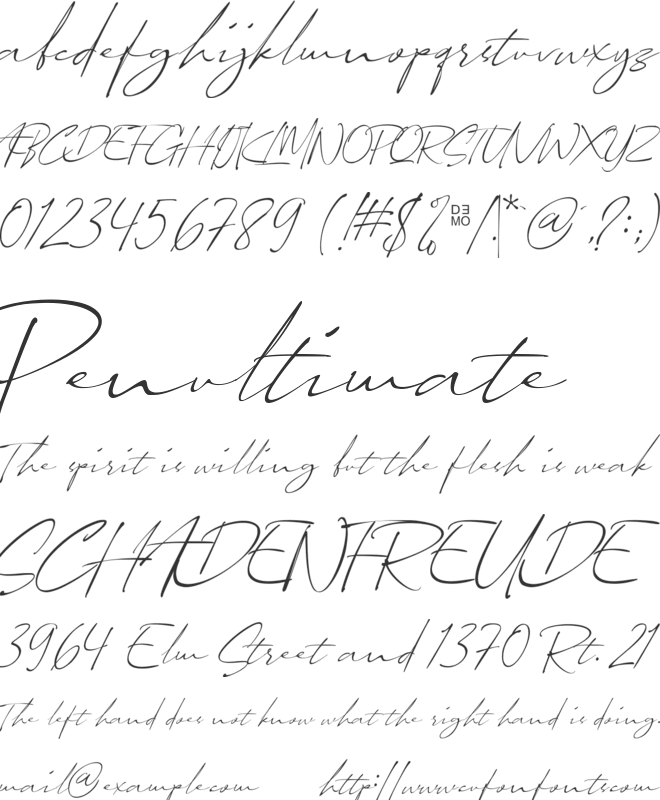 abcdefghijklmnopqrstuvwxyz
ABCDEFGHIJKLMNOPQRSTUVWXYZ
0123456789 (!#$%DEMO/.|*`@´,?:;)
Penultimate
The spirit is willing but the flesh is weak
SCHADENFREUDE
3964 Elm Street and 1370 Rt. 21
The left hand does not know what the right hand is doing.
mail@example.com http://www.cvfonfonts.com